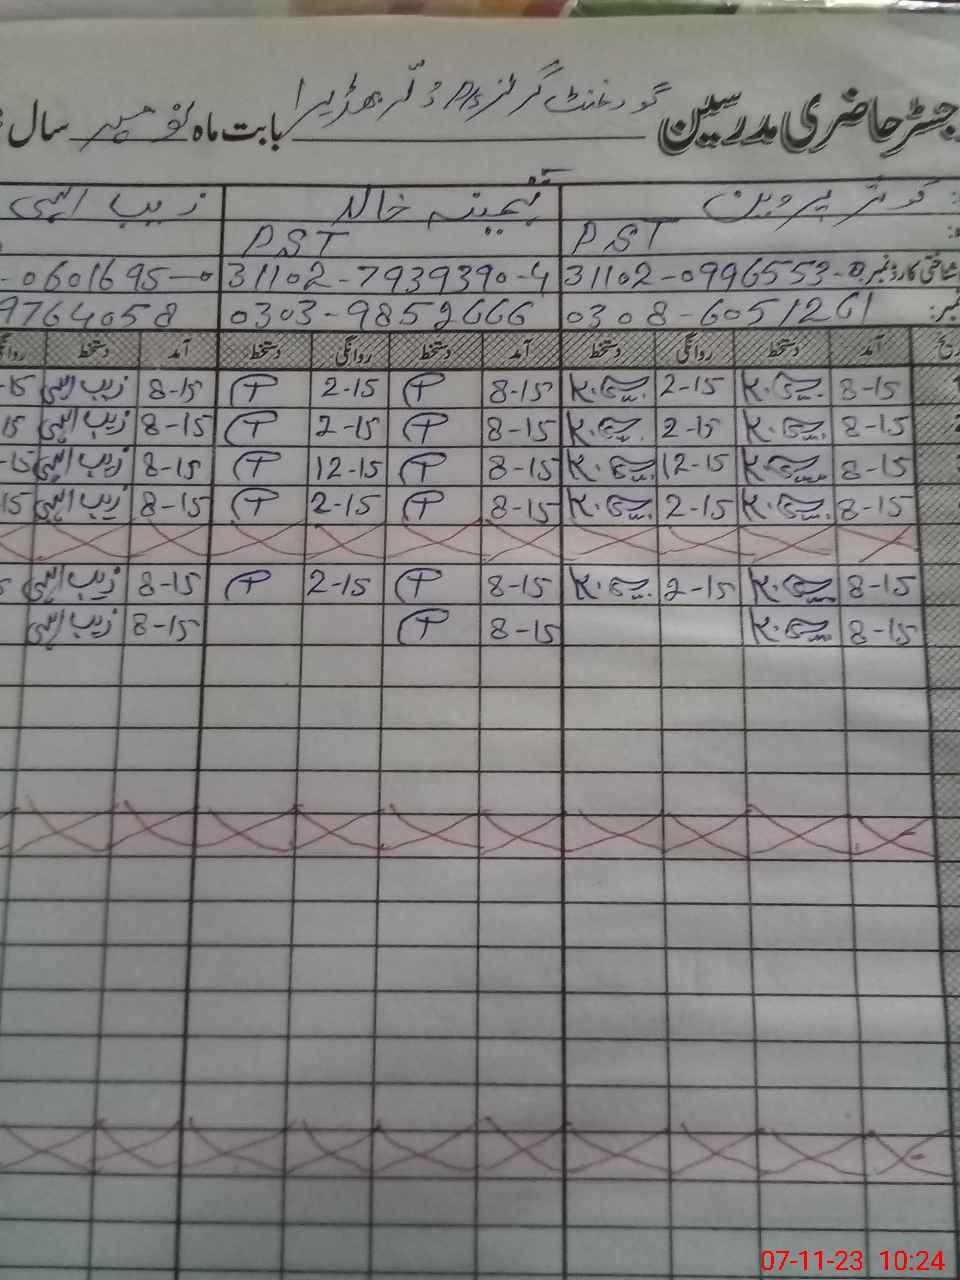 جسٹر حاضری مدرسین گورنمنٹ گرلز P/S بابت ماہ نومبر سال
کوثر پروین ثمینہ خالد زیب الہی
PST PST
شناختی کارڈ نمبر 31102-0996553-0 31102-7939390-4 -0601695-0
نمبر: 0308-6051261 0303-9852666 9764058
آمد دستخط روانگی دستخط آمد دستخط روانگی دستخط آمد دستخط
8-15 K. 2-15 K. 8-15 T 2-15 T 8-15 زیب الہی -15
8-15 K. 2-15 K. 8-15 T 2-15 T 8-15 زیب الہی 15
8-15 K. 12-15 K. 8-15 T 12-15 T 8-15 زیب الہی -15
8-15 K. 2-15 K. 8-15 T 2-15 T 8-15 زیب الہی 15
8-15 K. 2-15 K. 8-15 T 2-15 T 8-15 زیب الہی 5
8-15 K. 8-15 T 8-15 زیب الہی
07-11-23 10:24